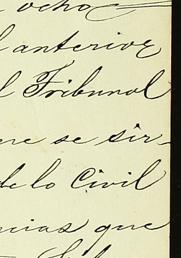 ocho
l anterior
l Tribunal
ue se sir-
de lo Civil
ncias que